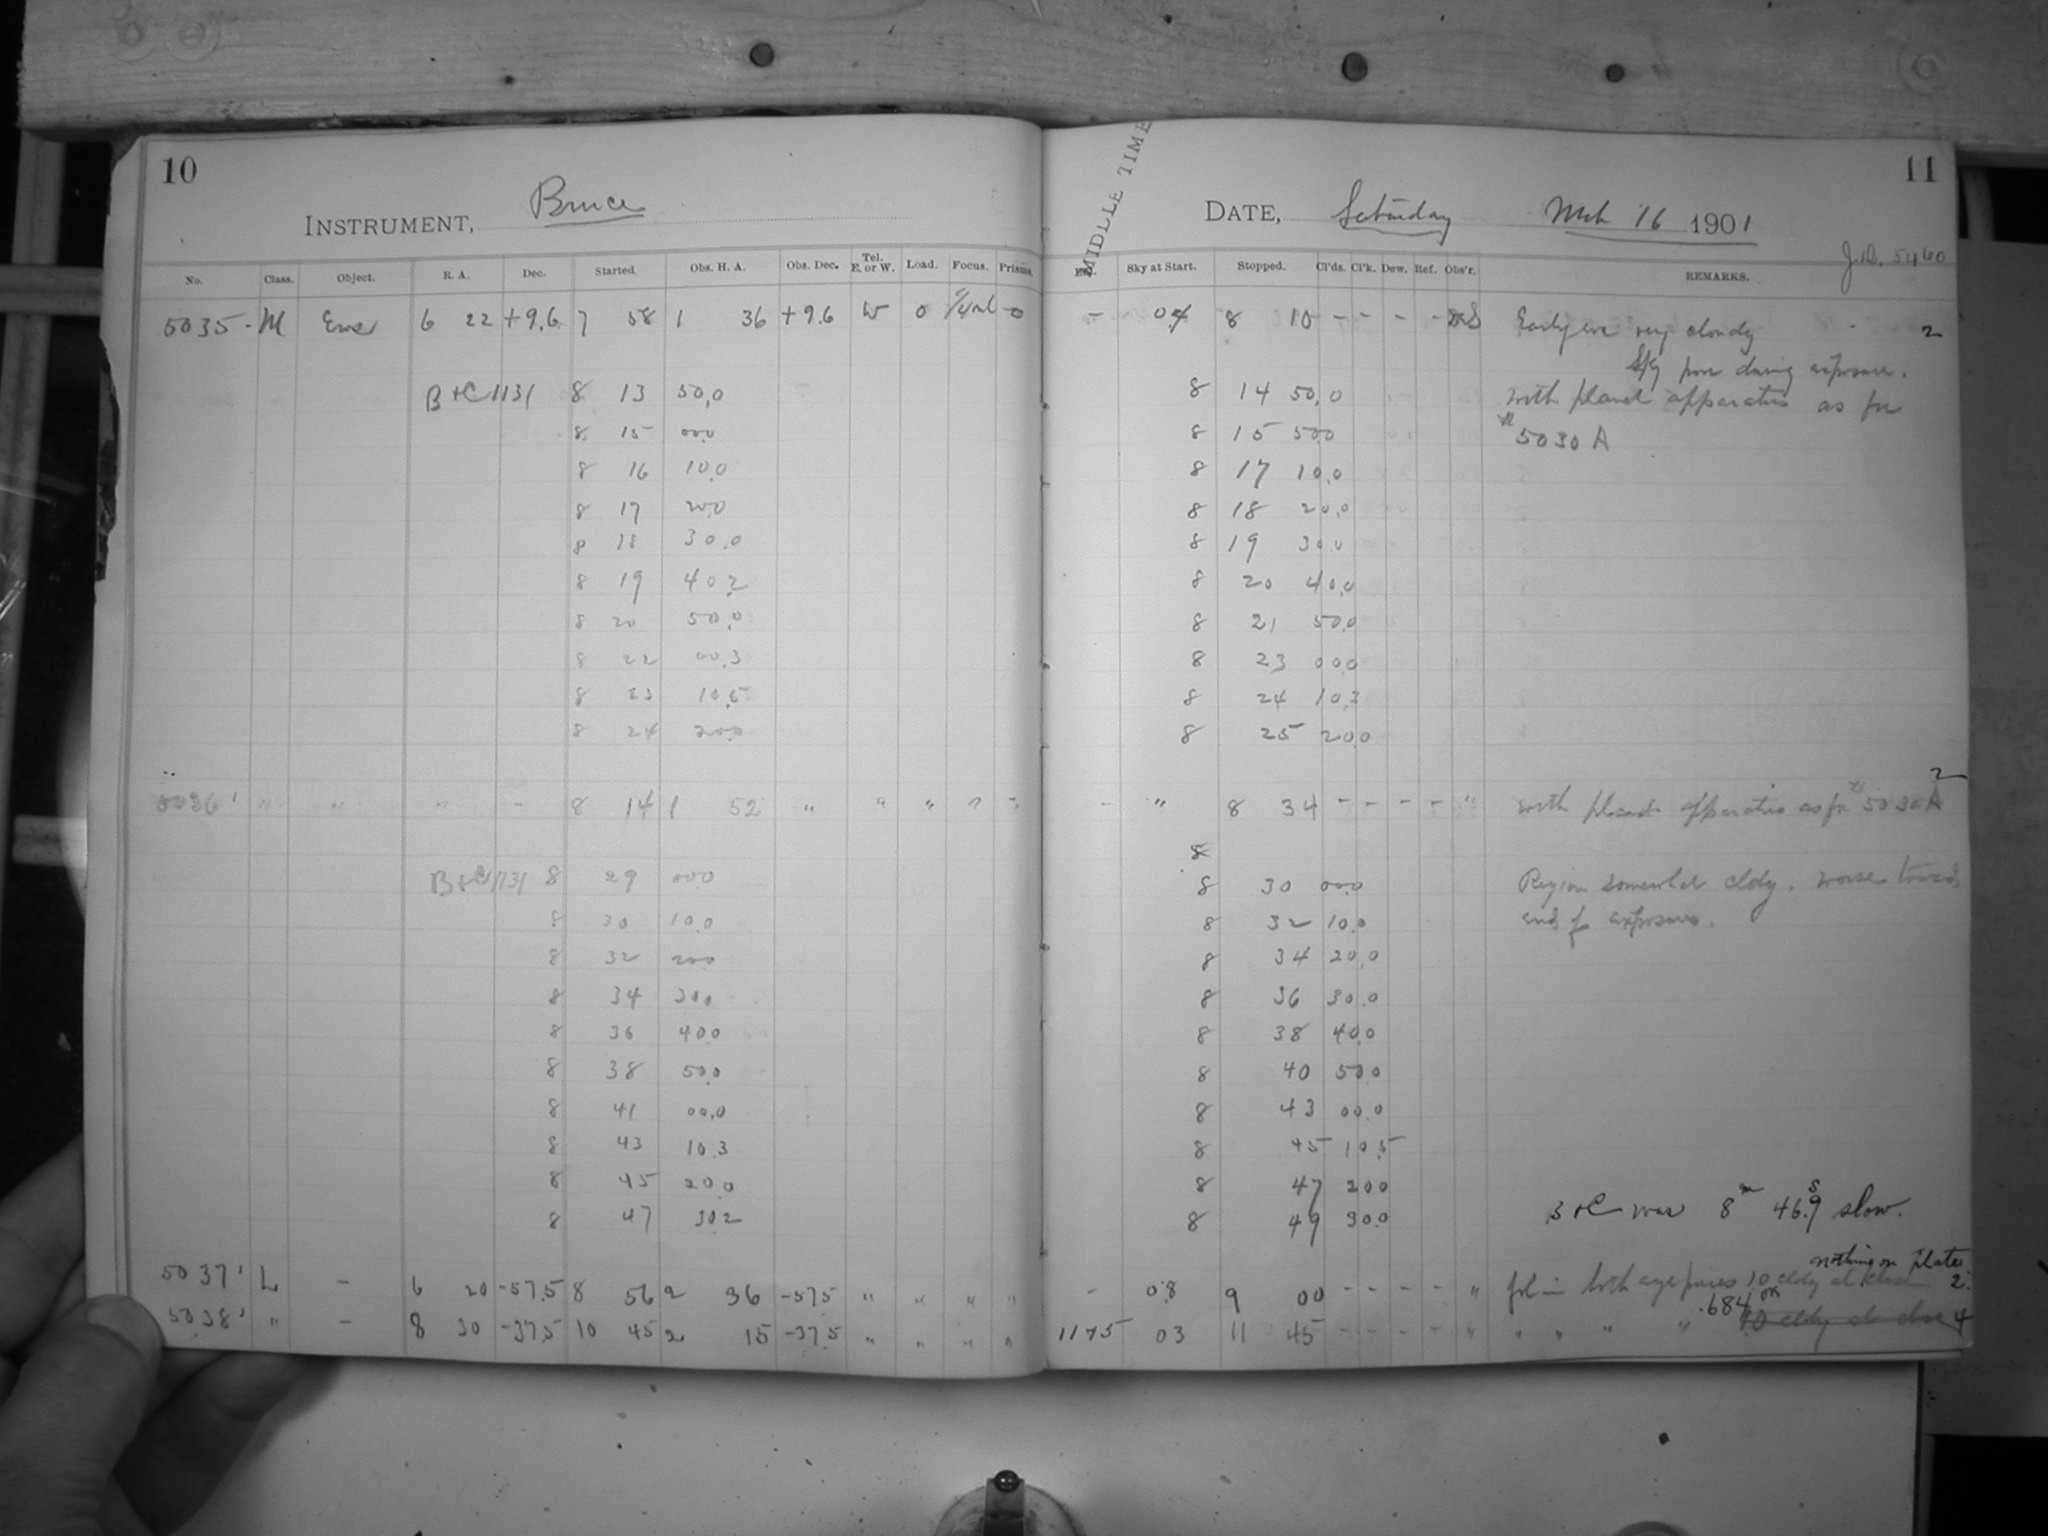 10
INSTRUMENT, Bruce
No. Class. Object. R. A. Dec. Started. Obs. H. A. Obs. Dec. Tel. E. or W. Load. Focus. Prisms.
5035 - M Eros 6 22 +9.6 7 58 1 36 +9.6 W 0
B+C 1131 8 13 50.0
8 15 00.0
8 16 10.0
8 17 20.0
8 18 30.0
8 19 40.2
8 20 50.0
8 22 00.3
8 23 10.5
8 24 20.0
5036 ' " " " - 8 14 1 52 " " " " "
B+C 1131 8 29 00.0
8 30 10.0
8 32 20.0
8 34 30.0
8 36 40.0
8 38 50.0
8 41 00.0
8 43 10.3
8 45 20.0
8 47 30.2
5037 ' L - 6 20 -57.5 8 56 2 36 -57.5 " " " "
5038 ' " - 8 30 -37.5 10 45 2 15 -37.5 " " " "
MIDDLE TIME
11
DATE, Saturday Mch 16 1901
J.D. 5460
Sky at Start. Stopped. Cl'ds. Cl'k. Dew. Ref. Obs'r. REMARKS.
- 04 8 10 - - - - Early eve very cloudy 2
Sky poor during exposure.
8 14 50.0 with planet apparatus as for
8 15 50.0 5030 A
8 17 10.0
8 18 20.0
8 19 30.0
8 20 40.0
8 21 50.0
8 23 00.0
8 24 10.3
8 25 20.0
2
- " 8 34 - - - - " with planet apparatus as for 5030 A
8
8 30 00.0 Region somewhat cldy. worse toward
8 32 10.0 end of exposure.
8 34 20.0
8 36 30.0
8 38 40.0
8 40 50.0
8 43 00.0
8 45 10.5
8 47 20.0
8 49 30.0 B+C was 8m 46.9s slow.
nothing on plate
- 08 9 00 - - - - " fol in both eyepieces 10 cldy at close 2
.684 OK
1175 03 11 45 - - - - " " " " " 10 cldy at close 4